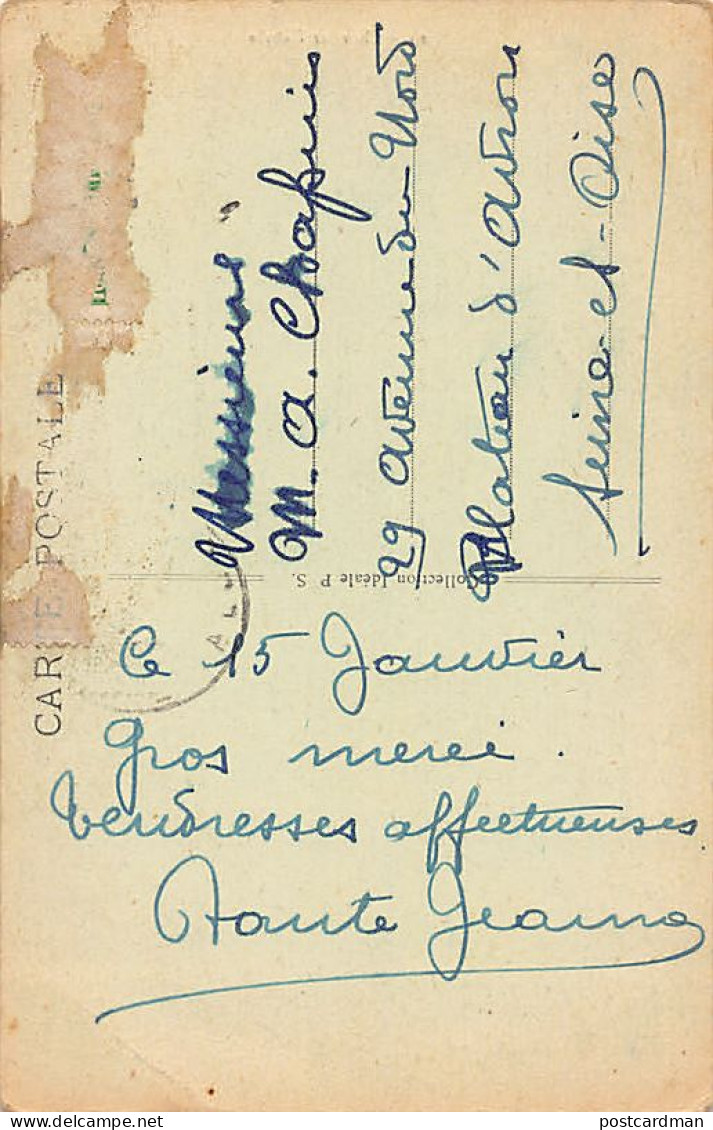 CARTE POSTALE
Collection Idéale P. S.
Messieurs
M. A. Chapuis
29 avenue du Nord
Plateau d'Avron
Seine-et-Oise
Le 15 Janvier
Gros merci.
Tendresses affectueuses
Tante Jeanne
postcardman